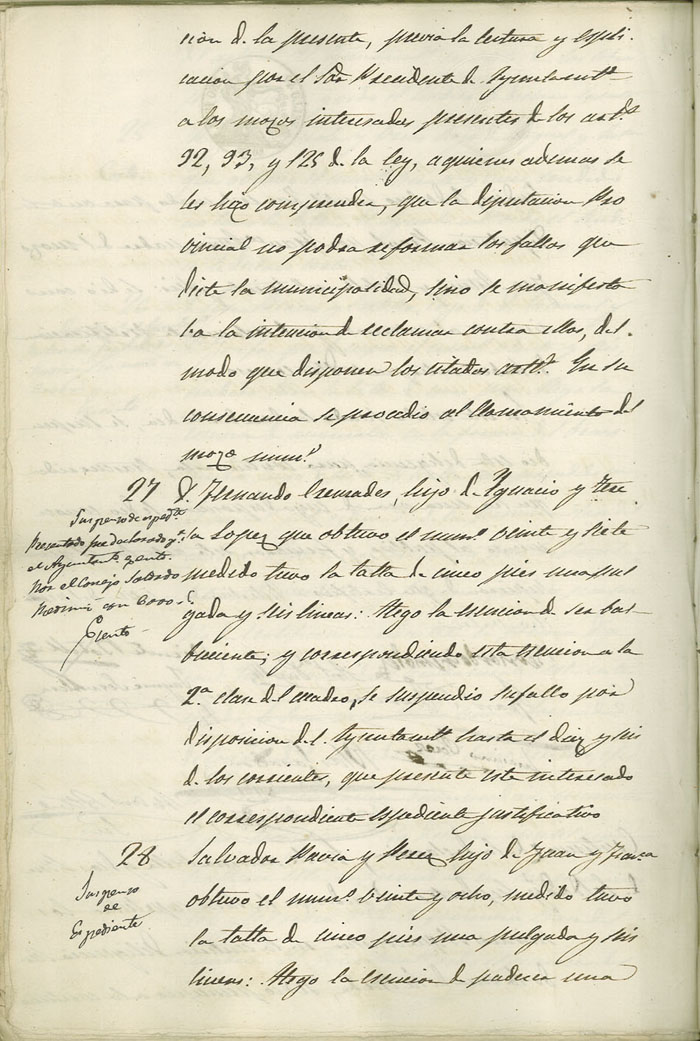 cion de la presente, previa la lectura y espli-
cacion por el Sor Presidente de Ayuntamto
a los mozos interesados presentes de los arts
92, 93, y 125 de la ley, a quienes ademas se
les hizo comprender, que la diputacion Pro
vincial no podra reformar los fallos que
dicte la municipalidad, sino se manifesta
ba la intencion de reclamar contra ellos, del
modo que disponen los citados arts. En su
consecuencia se procedio al llamamiento del
mozo numo
27 D. Fernando Cremades, hijo de Ignacio y Tere
sa Lopez que obtuvo el numo veinte y siete
medido tuvo la talla de cinco pies una pul
gada y seis lineas: Alego la esencion de ser bar-
; y correspondiendo esta esencion a la
2a clase del cuadro, se suspendio su fallo por
disposicion del Ayuntamto hasta el diez y seis
de los corrientes, que presente este interesado
el correspondiente espediente justificativo
Suspenso de espedte
Presentado fue declarado pr
el Ayuntamto exento.
Por el Consejo Soldado
Redimió con 6000
Exento
28 Salvador Pavia y Perez hijo de Juan y Franca
obtuvo el numo veinte y ocho, medido tuvo
la talla de cinco pies una pulgada y seis
lineas: Alego la esencion de padecer una
Suspenso
de
Espediente